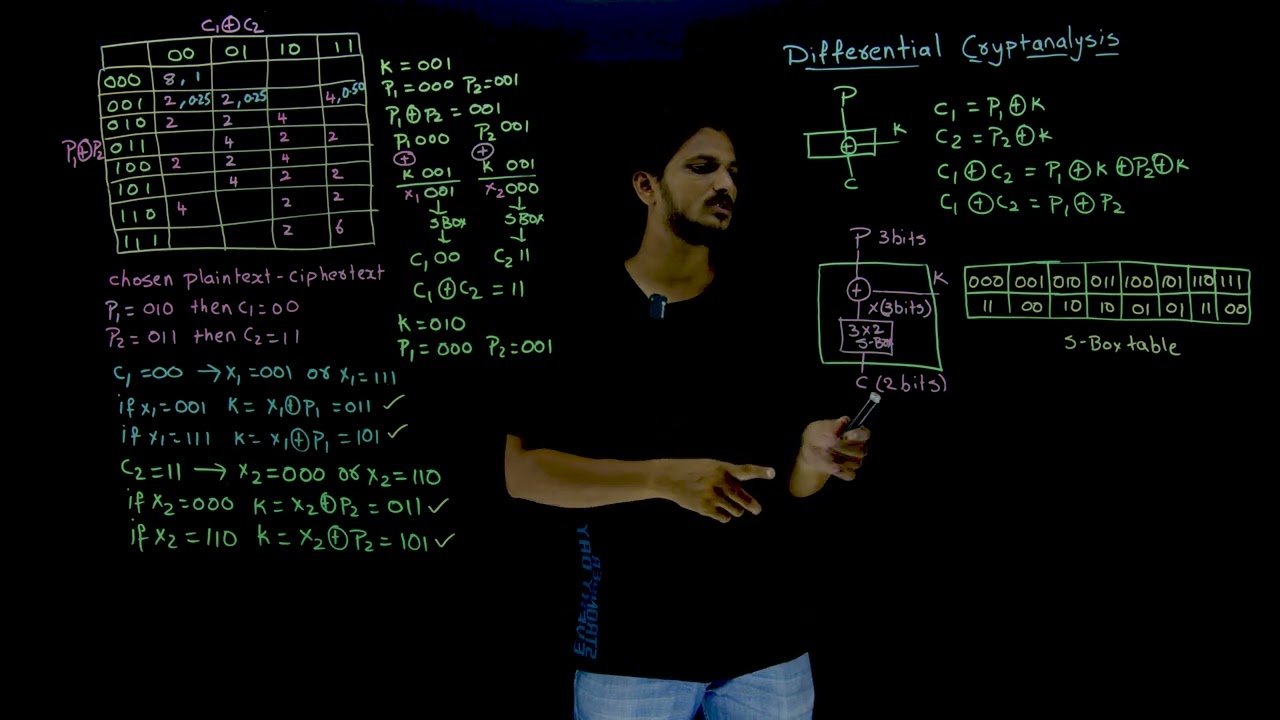 C₁⊕C₂
00 01 10 11
000 8, 1
001 2, 0.25 2, 0.25 4, 0.50
010 2 2 4
P₁⊕P₂
011 4 2 2
100 2 2 4
101 4 2 2
110 4 2 2
111 2 6
chosen plaintext - ciphertext
P₁ = 010 then C₁ = 00
P₂ = 011 then C₂ = 11
C₁ = 00 → X₁ = 001 or X₁ = 111
if X₁ = 001 K = X₁⊕P₁ = 011 ✓
if X₁ = 111 K = X₁⊕P₁ = 101 ✓
C₂ = 11 → X₂ = 000 or X₂ = 110
if X₂ = 000 K = X₂⊕P₂ = 011 ✓
if X₂ = 110 K = X₂⊕P₂ = 101 ✓
K = 001
P₁ = 000 P₂ = 001
P₁⊕P₂ = 001
P₁ 000 P₂ 001
⊕ ⊕
K 001 K 001
X₁ 001 X₂ 000
↓ ↓
S BOX S BOX
↓ ↓
C₁ 00 C₂ 11
C₁⊕C₂ = 11
K = 010
P₁ = 000 P₂ = 001
Differential Cryptanalysis
P
K
⊕
C
C₁ = P₁⊕K
C₂ = P₂⊕K
C₁⊕C₂ = P₁⊕K⊕P₂⊕K
C₁⊕C₂ = P₁⊕P₂
P 3bits
K
⊕
X (3bits)
3×2
S-Box
C (2bits)
000 001 010 011 100 101 110 111
11 00 10 10 01 01 11 00
S-Box table